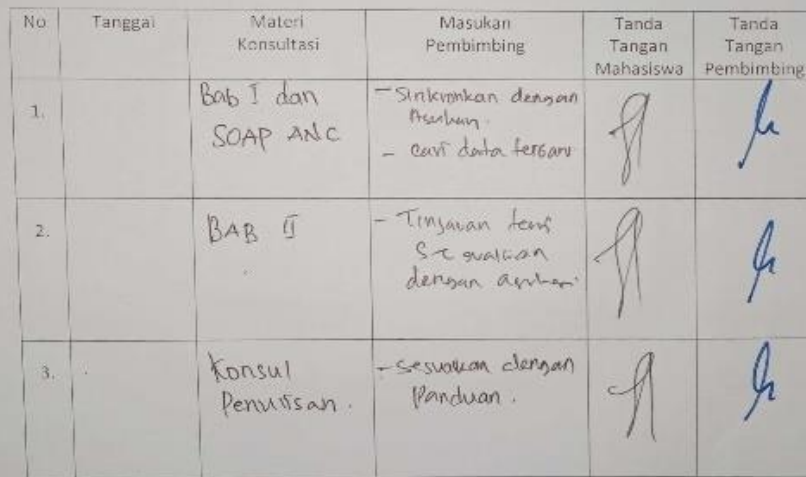 No Tanggal Materi Konsultasi Masukan Pembimbing Tanda Tangan Mahasiswa Tanda Tangan Pembimbing
1. Bab I dan
SOAP ANC
- Sinkronkan dengan
Asuhan.
- cari data terbaru
2. BAB II
- Tinjauan teori
sesuaikan
dengan asuhan
3. Konsul
Penulisan.
- sesuaikan dengan
Panduan.